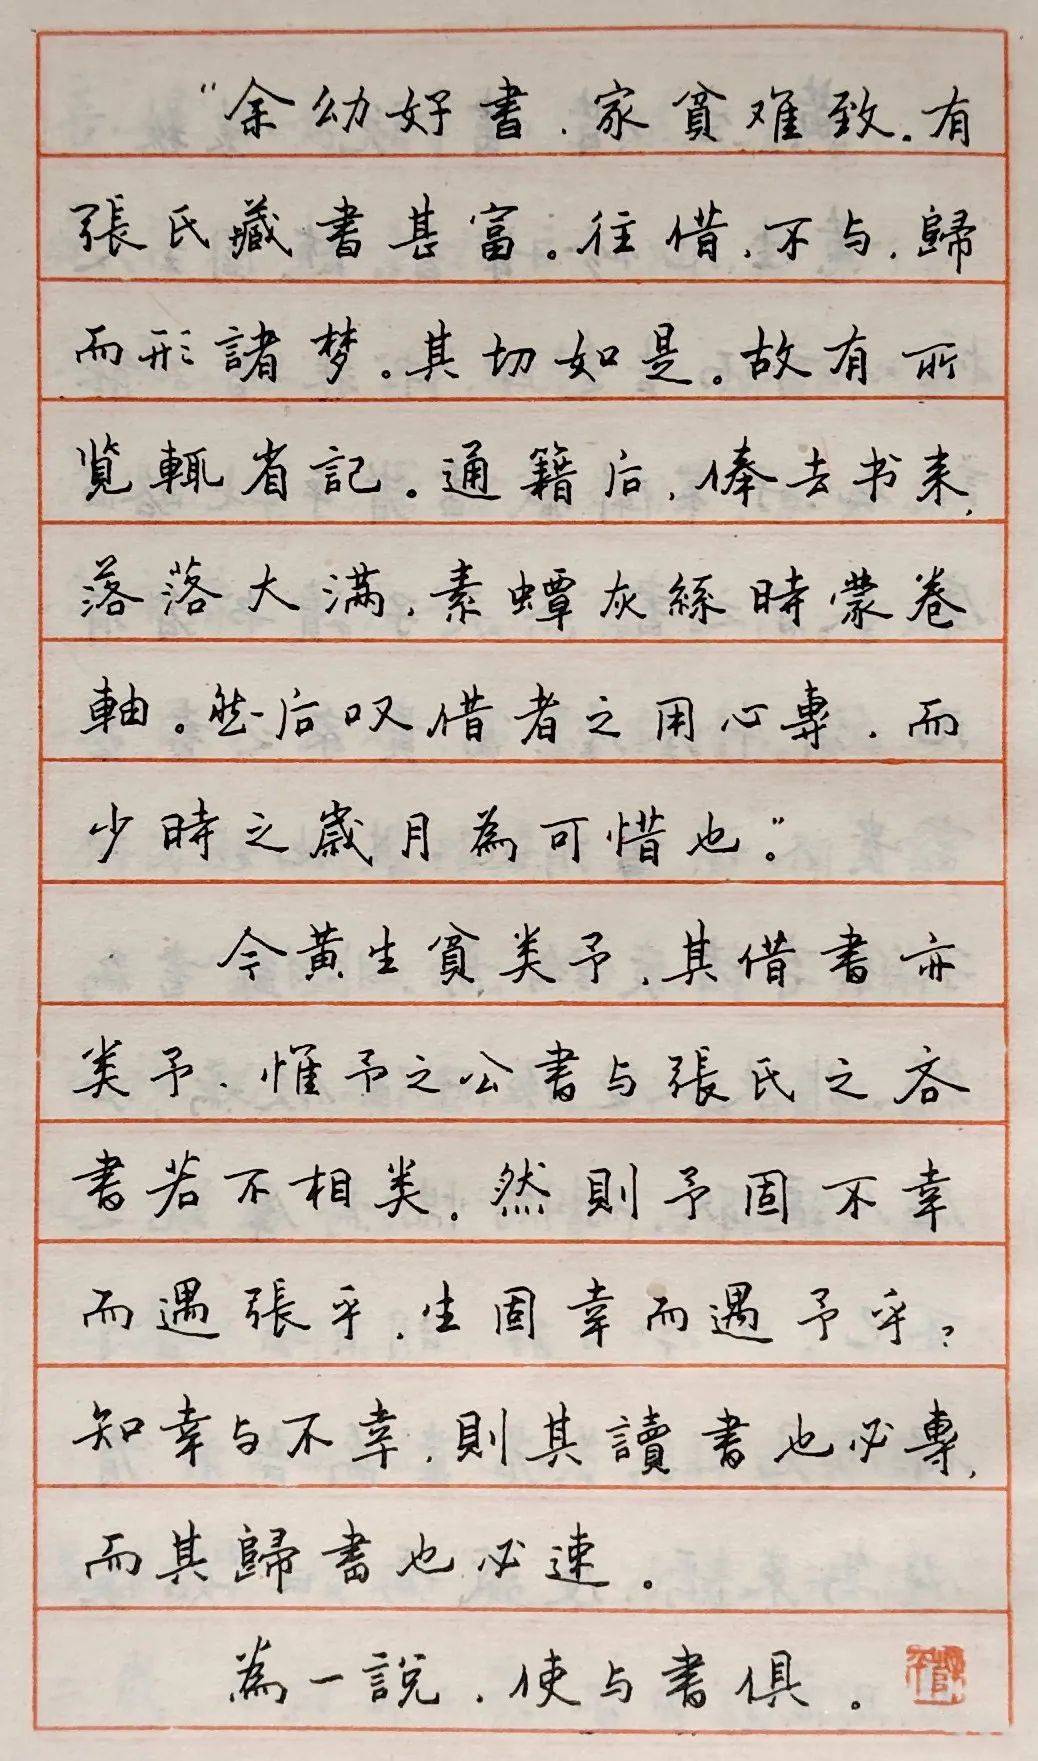 “余幼好書，家貧难致。有
張氏藏書甚富。往借，不与，歸
而形諸梦。其切如是。故有所
览輒省記。通籍后，俸去书来，
落落大满，素蟫灰絲時蒙卷
軸。然后叹借者之用心專，而
少時之歲月為可惜也”。
今黄生貧类予，其借書亦
类予，惟予之公書与張氏之吝
書若不相类。然則予固不幸
而遇張乎，生固幸而遇予乎？
知幸与不幸，則其讀書也必專，
而其歸書也必速。
為一説，使与書俱。